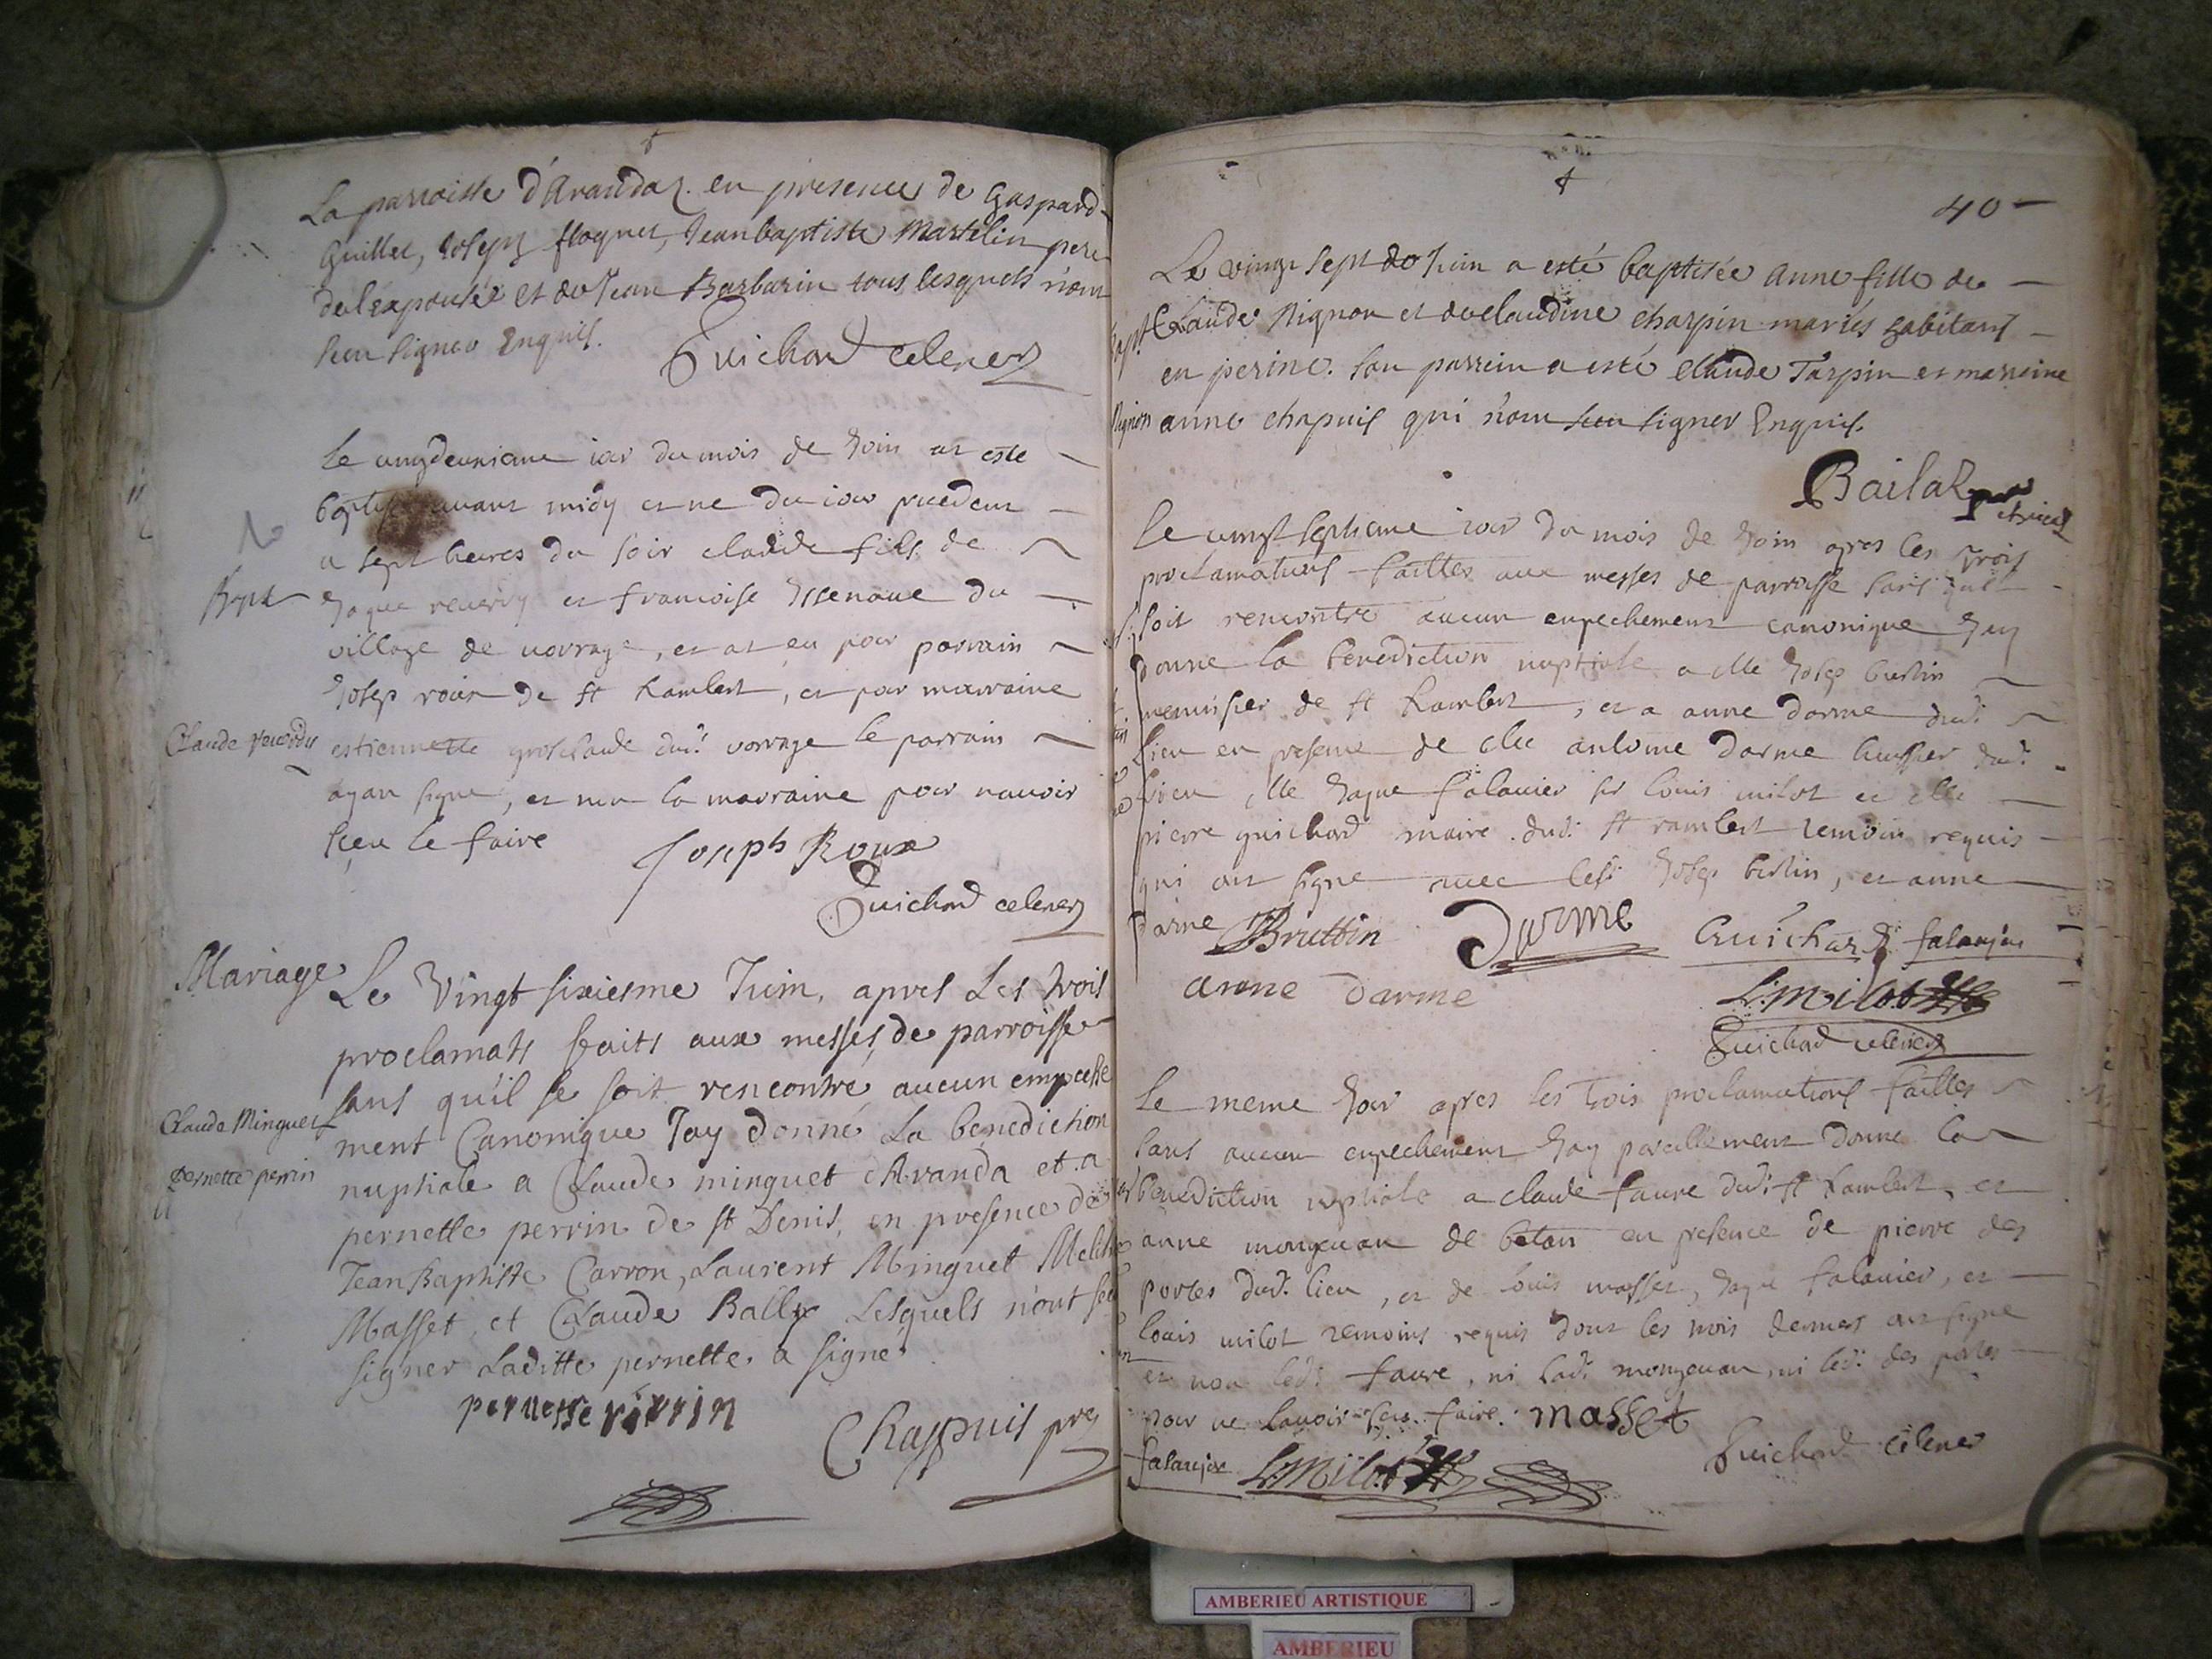 La parroisse d'Arandaz en presence de Gaspard
Guillet, Joseph floquet, Jean baptiste Martelin pere
de l'expousée et de Jean Barbarin tous lesquels n'ont
sceu signer Enquis.
Guichard celerer
Le vingdeuxieme iour du mois de Join at este
avant midy et ne du iour precedent
a sept heures du soir claude fils de
Bapt
Jaque reverdy et francoise du
village de vorrage, et at eu pour parrain
Josep roux de st Rambert, et par marraine
Claude reverdy
estiennette grosclaude dud. vorrage le parrain
ayan signe, et non la marraine pour navoir
sceu le faire
Joseph Roux
Guichard celerer
Mariage
Le Vingt sixiesme Juin, apres Les trois
proclamats faits aux messes de parroisse
sans qu'il se soit rencontré aucun empeche
Claude Minguet
ment Canonique Jay donné La benediction
pernette perrin
nuptiale a Claude minguet d'Aranda et a
pernette perrin de st Denis, en presence de
Jean Baptiste Carron, Laurent Minguet
Masset, et Claude Bally Lesquels n'ont sceu
signer Laditte pernette a signé
pernette perrin
Chappuis
40
Le vingt sept de Juin a esté baptisée anne fille de
Bapt.
Claude Nignon et de claudine charpin mariés habitans
en perine. Son parrein a esté Claude Tarpin et marreine
Nignon
anne chapuis qui n'ont sceu signer Enquis.
Bailat
Le vingt septieme iour du mois de Join apres les trois
proclamations faittes aux messes de parroisse sans quil
soit rencontré aucun enpechement canonique Jey
donne la benediction nuptiale a Me Josep
menuisier de st Rambert, et a anne darme dud.
Lieu en presence de Me antoine Darme huissier dud.
Lieu Me Jaque falavier sr Louis milot et Me
pierre guichard maire dud. st rambert temoins requis
qui ont signe avec led. Josep, et anne
darme
Bruttin
Darme
Guichard
falavier
anne darme
L. Milot
Guichard celerer
Le meme Jour apres les trois proclamations faittes
sans aucun enpechement Jay pareillement donne la
benediction nuptiale a claude faure dud. st Rambert, et
anne mongenan de betan en presence de pierre des
portes dud. lieu, et de Louis masset, Jaque falavier, et
Louis milot temoins requis dont les trois derniers ont signe
et non led. faure, ni lad. mongenan, ni led. des portes
pour ne savoir sceu faire.
masset
falavier
L. Milot
Guichard celerer
AMBERIEU ARTISTIQUE
AMBERIEU